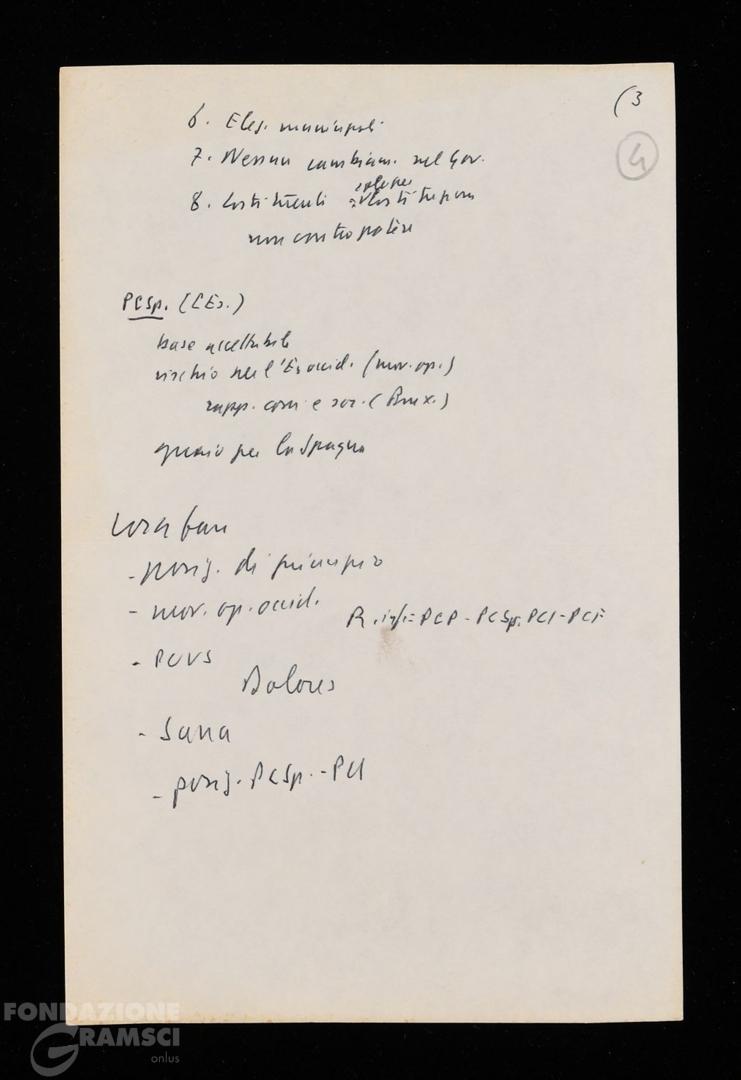 (3
4
6. Elez. municipali
7. Nessun cambiam. nel Gov.
8. Costituenti
non contropotere
PCSp. (CEs.)
base accettabile
rischio per l'Eu occid. (mov. op.)
rapp. com e soc. (Brux.)
guaio per la Spagna
Cosa fare
- posiz. di principio
- mov. op. occid.
R. inf. = PCP - PCSp. PCI - PCF
- PCUS
Dolores
-
- posiz. PCSp. - PCI
FONDAZIONE
GRAMSCI
onlus